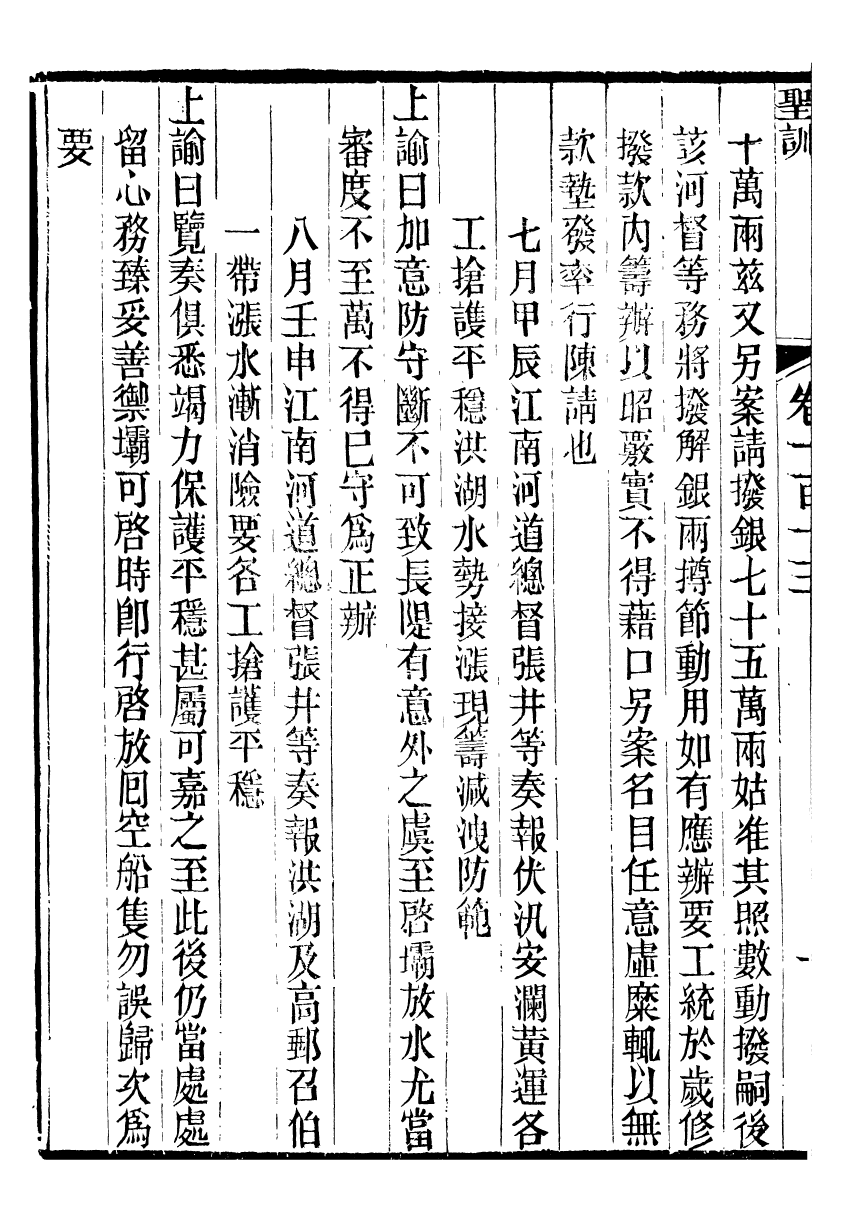 聖訓 卷一百十三
十萬兩茲又另案請撥銀七十五萬兩姑准其照數動撥嗣後
該河督等務將撥解銀兩撙節動用如有應辦要工統於歲修
撥款內籌辦以昭覈實不得藉口另案名目任意虛糜輒以無
款墊發率行陳請也
七月甲辰江南河道總督張井等奏報伏汛安瀾黃運各
工搶護平穩洪湖水勢接漲現籌減洩防範
上諭曰加意防守斷不可致長隄有意外之虞至啓壩放水尤當
審度不至萬不得已守爲正辦
八月壬申江南河道總督張井等奏報洪湖及高郵召伯
一帶漲水漸消險要各工搶護平穩
上諭曰覽奏俱悉竭力保護平穩甚屬可嘉之至此後仍當處處
留心務臻妥善禦壩可啓時卽行啓放回空船隻勿誤歸次爲
要